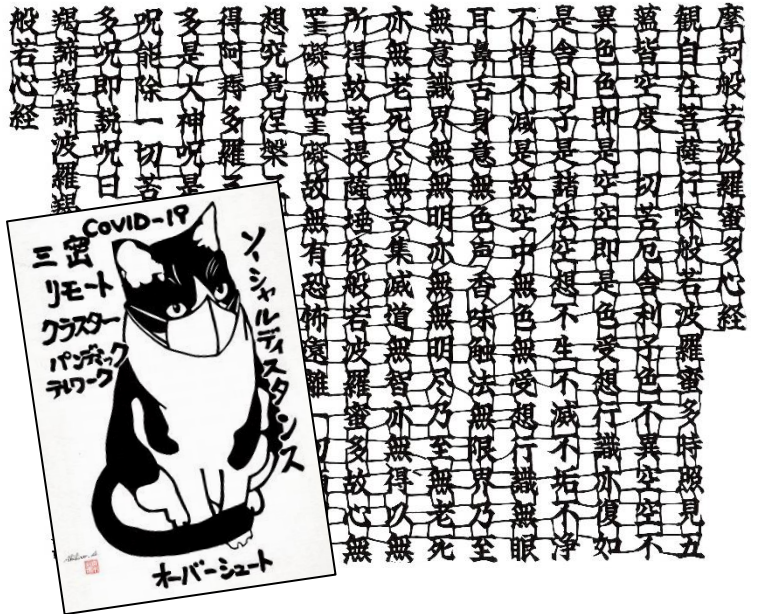 摩訶般若波羅蜜多心経
観自在菩薩行深般若波羅蜜多時照見五
蘊皆空度一切苦厄舎利子色不異空空不
異色色即是空空即是色受想行識亦復如
是舎利子是諸法空想不生不滅不垢不浄
不増不減是故空中無色無受想行識無眼
耳鼻舌身意無色声香味触法無限界乃至
無意識界無無明亦無無明尽乃至無老死
亦無老死尽無苦集滅道無智亦無得以無
所得故菩提薩埵依般若波羅蜜多故心無
罣礙無罣礙故無有恐怖遠離
想究竟涅槃
得阿耨多羅三
多是大神呪是
呪能除一切苦
多呪即説呪曰
羯諦羯諦波羅羯
般若心経
COVID-19
ソーシャルディスタンス
三密
リモート
クラスター
パンデミック
テレワーク
オーバーシュート